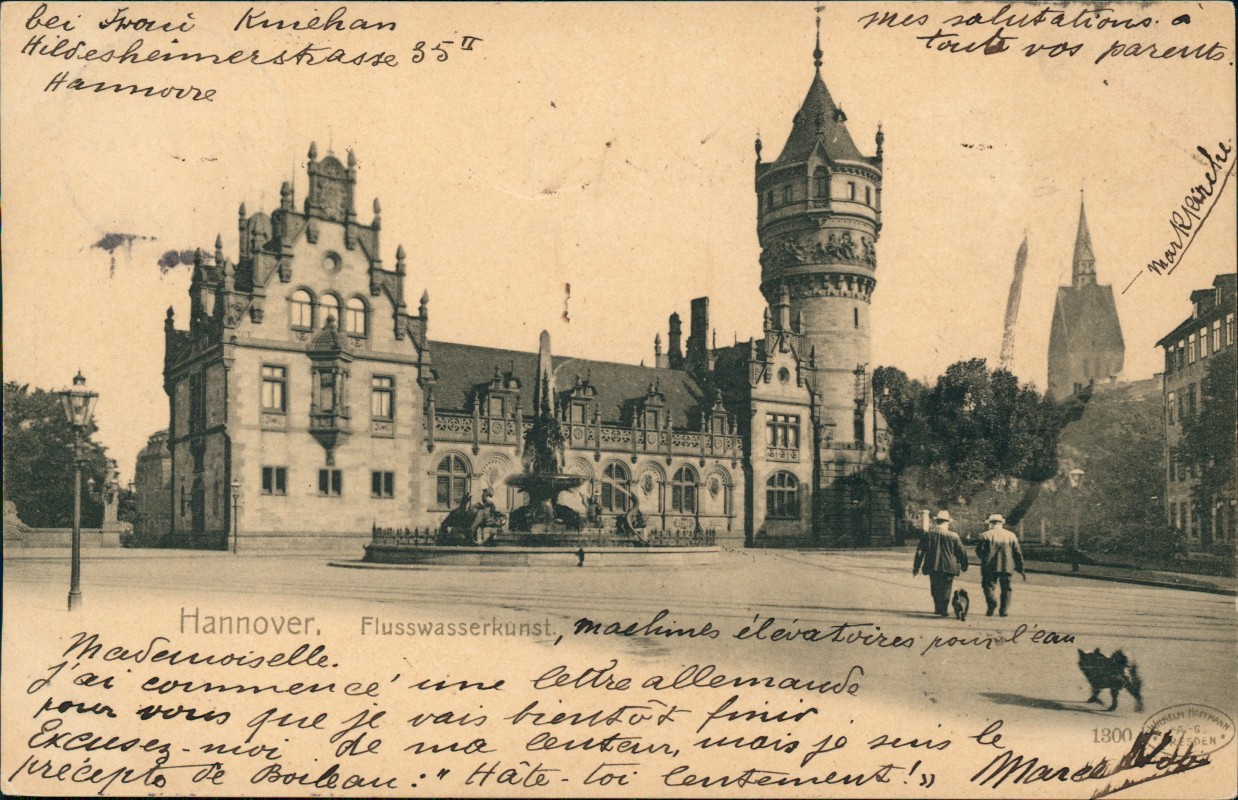 bei Frau Kniehan
Hildesheimerstrasse 35 II
Hannovre
mes salutations à
toute vos parents.
Marktkirche
Hannover. Flusswasserkunst.
, machines élévatoires pour l'eau
Mademoiselle.
J'ai commencé une lettre allemande
pour vous que je vais bientôt finir
Excusez-moi de ma lenteur, mais je suis le
précepte de Boileau: "Hâte-toi lentement!"
Marcel
1300
WILHELM HOFFMANN
A.-G.
DRESDEN